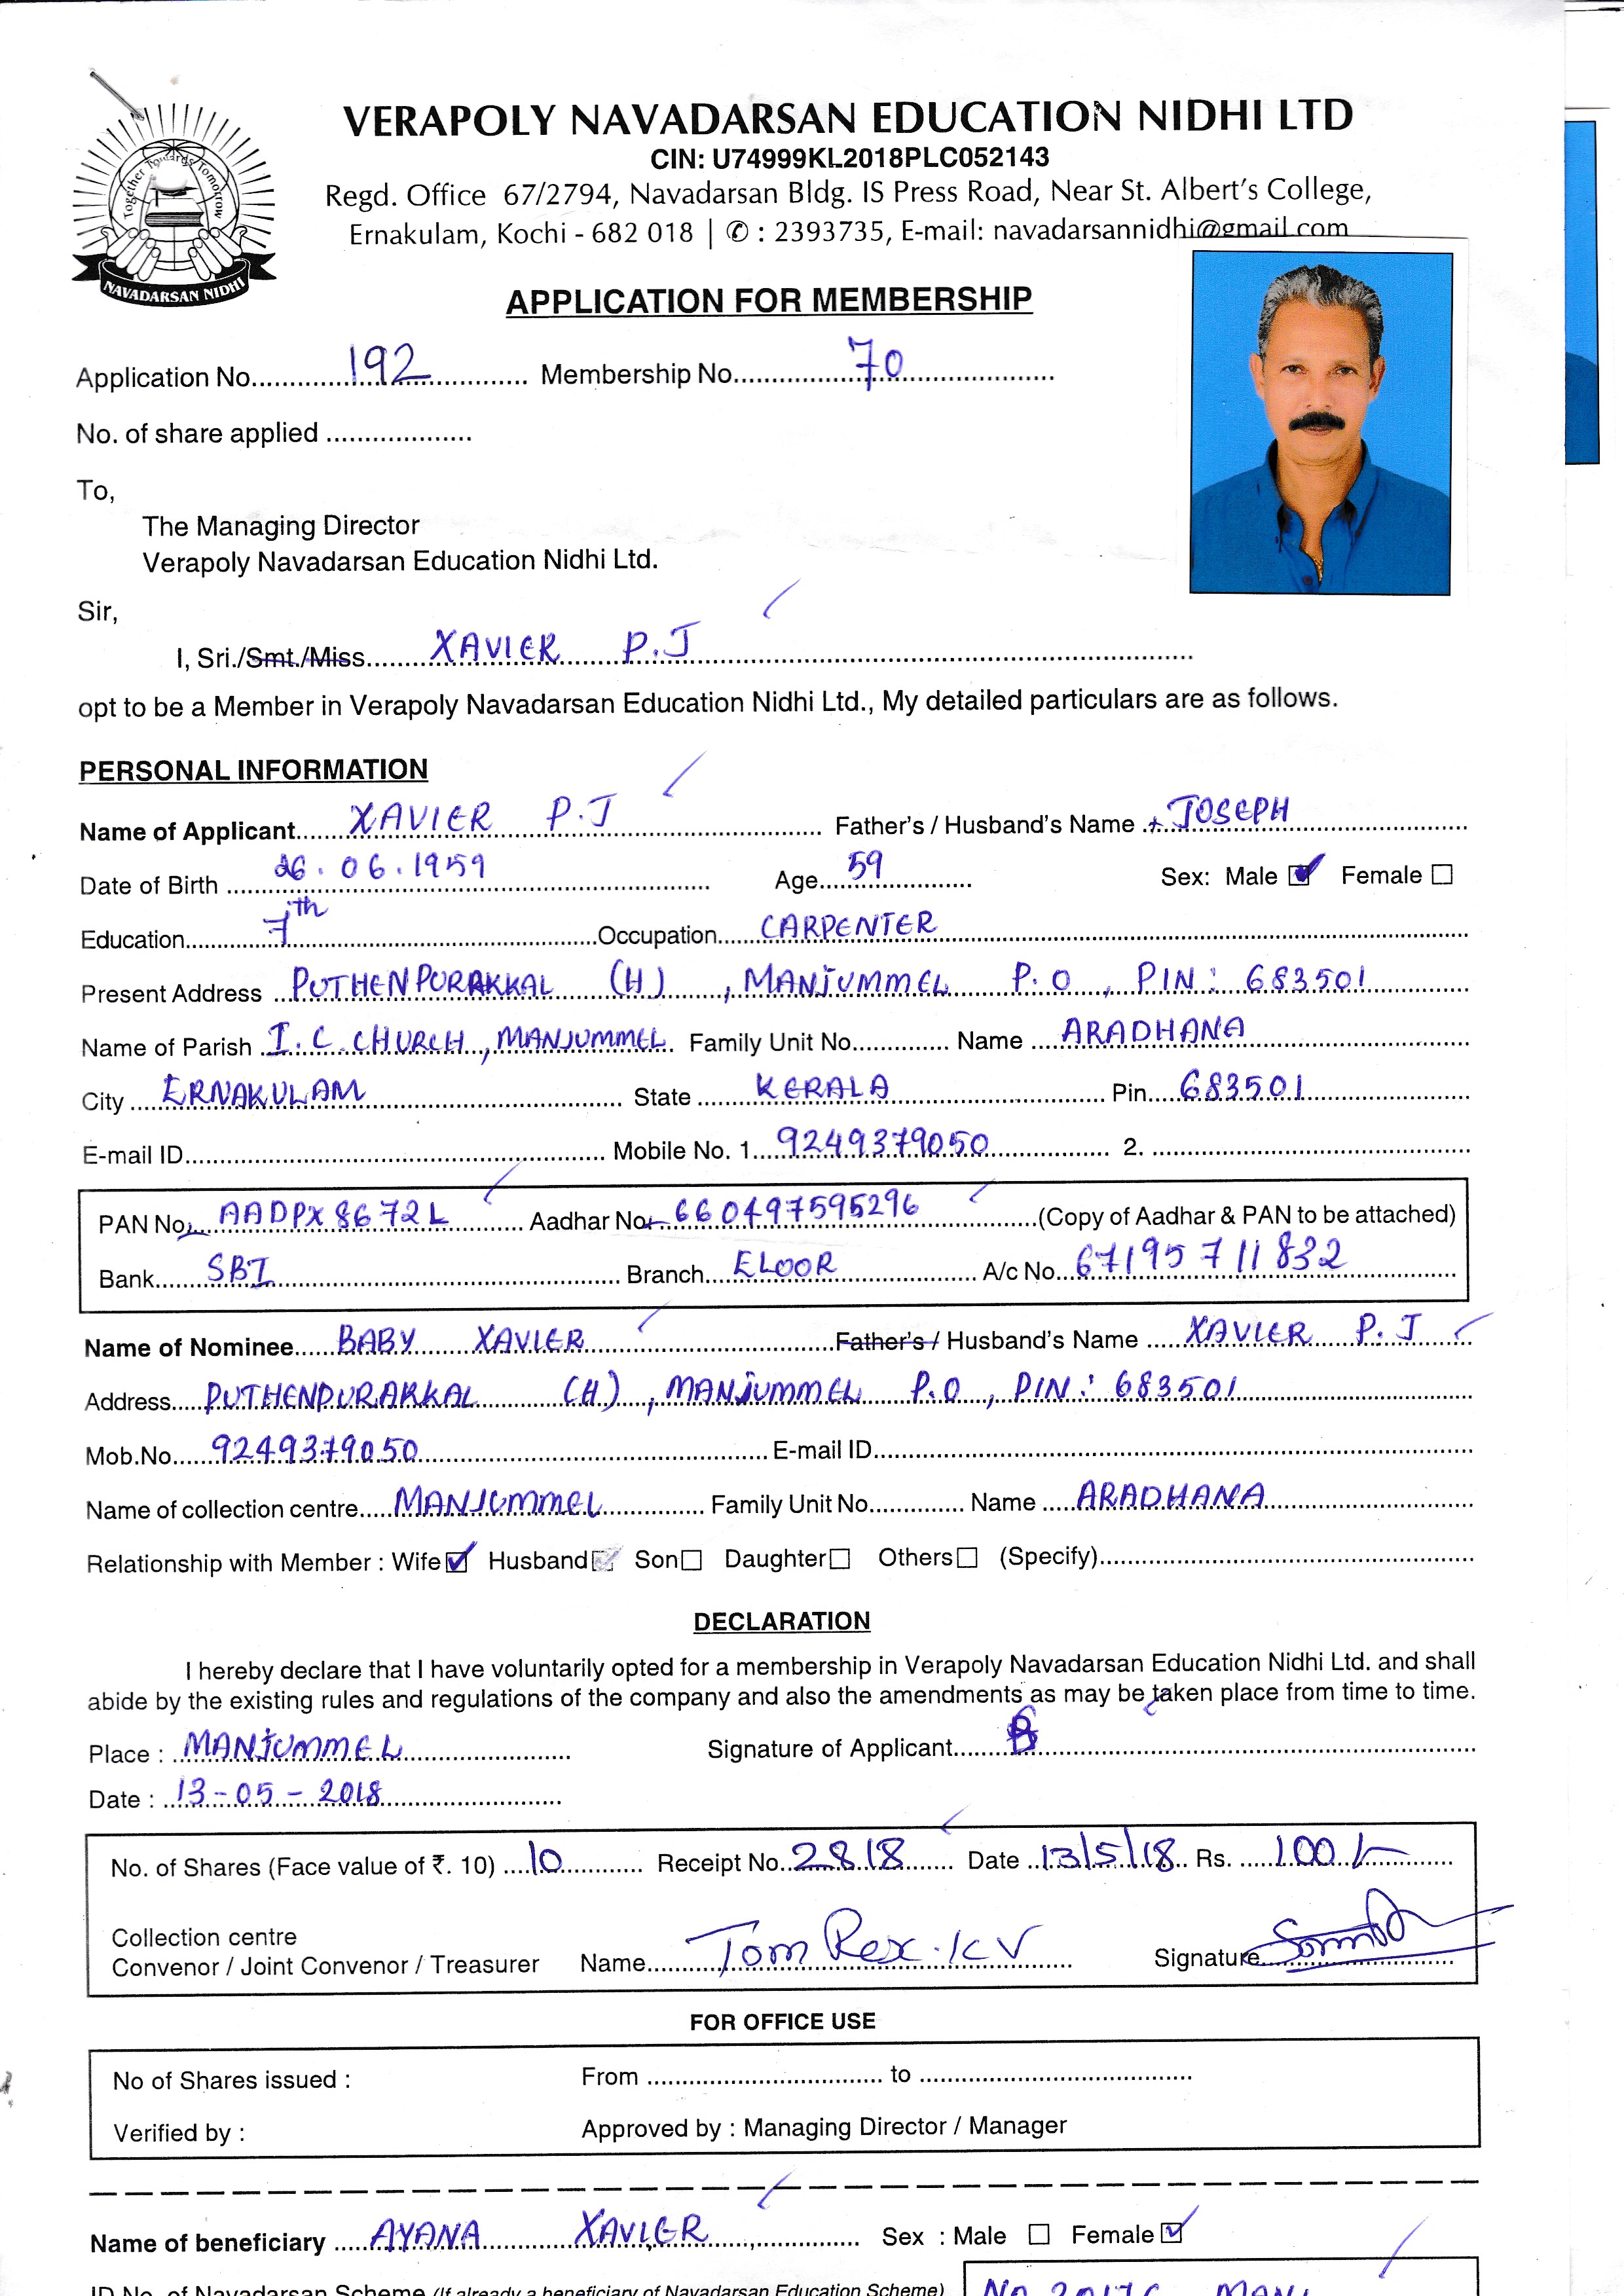 VERAPOLY NAVADARSAN EDUCATION NIDHI LTD
CIN: U74999KL2018PLC052143
Regd. Office 67/2794, Navadarsan Bldg. IS Press Road, Near St. Albert's College,
Ernakulam, Kochi - 682 018 | ✆ : 2393735, E-mail: navadarsannidhi@gmail.com
Together Towards Tomorrow
NAVADARSAN NIDHI
APPLICATION FOR MEMBERSHIP
Application No. 192 Membership No. 70
No. of share applied
To,
The Managing Director
Verapoly Navadarsan Education Nidhi Ltd.
Sir,
I, Sri./Smt./Miss XAVIER P.J
opt to be a Member in Verapoly Navadarsan Education Nidhi Ltd., My detailed particulars are as follows.
PERSONAL INFORMATION
Name of Applicant XAVIER P.J Father's / Husband's Name JOSEPH
Date of Birth 26.06.1959 Age 59 Sex: Male ☑ Female ☐
Education 7th Occupation CARPENTER
Present Address PUTHENPURAKKAL (H), MANJUMMEL P.O, PIN: 683501
Name of Parish I.C. CHURCH, MANJUMMEL Family Unit No. Name ARADHANA
City ERNAKULAM State KERALA Pin 683501
E-mail ID Mobile No. 1 9249379050 2.
PAN No. AADPX8672L Aadhar No. 660497595296 (Copy of Aadhar & PAN to be attached)
Bank SBI Branch ELOOR A/c No. 67195711832
Name of Nominee BABY XAVIER Father's / Husband's Name XAVIER P.J
Address PUTHENPURAKKAL (H), MANJUMMEL P.O, PIN: 683501
Mob.No. 9249379050 E-mail ID
Name of collection centre MANJUMMEL Family Unit No. Name ARADHANA
Relationship with Member : Wife ☑ Husband ☐ Son ☐ Daughter ☐ Others ☐ (Specify)
DECLARATION
I hereby declare that I have voluntarily opted for a membership in Verapoly Navadarsan Education Nidhi Ltd. and shall
abide by the existing rules and regulations of the company and also the amendments as may be taken place from time to time.
Place : MANJUMMEL Signature of Applicant
Date : 13-05-2018
No. of Shares (Face value of ₹. 10) 10 Receipt No. 2818 Date 13/5/18 Rs. 100/-
Collection centre
Convenor / Joint Convenor / Treasurer Name Tom Rex. K V Signature
FOR OFFICE USE
No of Shares issued : From to
Verified by : Approved by : Managing Director / Manager
Name of beneficiary AYANA XAVIER Sex : Male ☐ Female ☑
ID No. of Navadarsan Scheme (If already a beneficiary of Navadarsan Education Scheme)